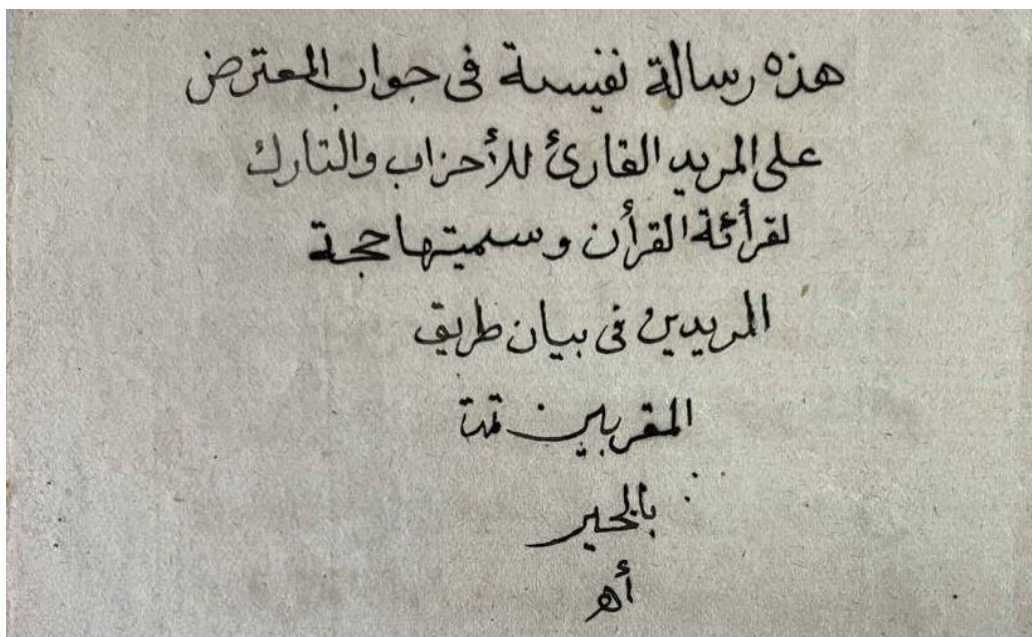 هذه رسالة نفيسة فى جواب المعترض
على المريد القارئ للأحزاب والتارك
لقرأئة القرأن وسميتها حجة
المريدين فى بيان طريق
المقربين تمت
بالخير
أه